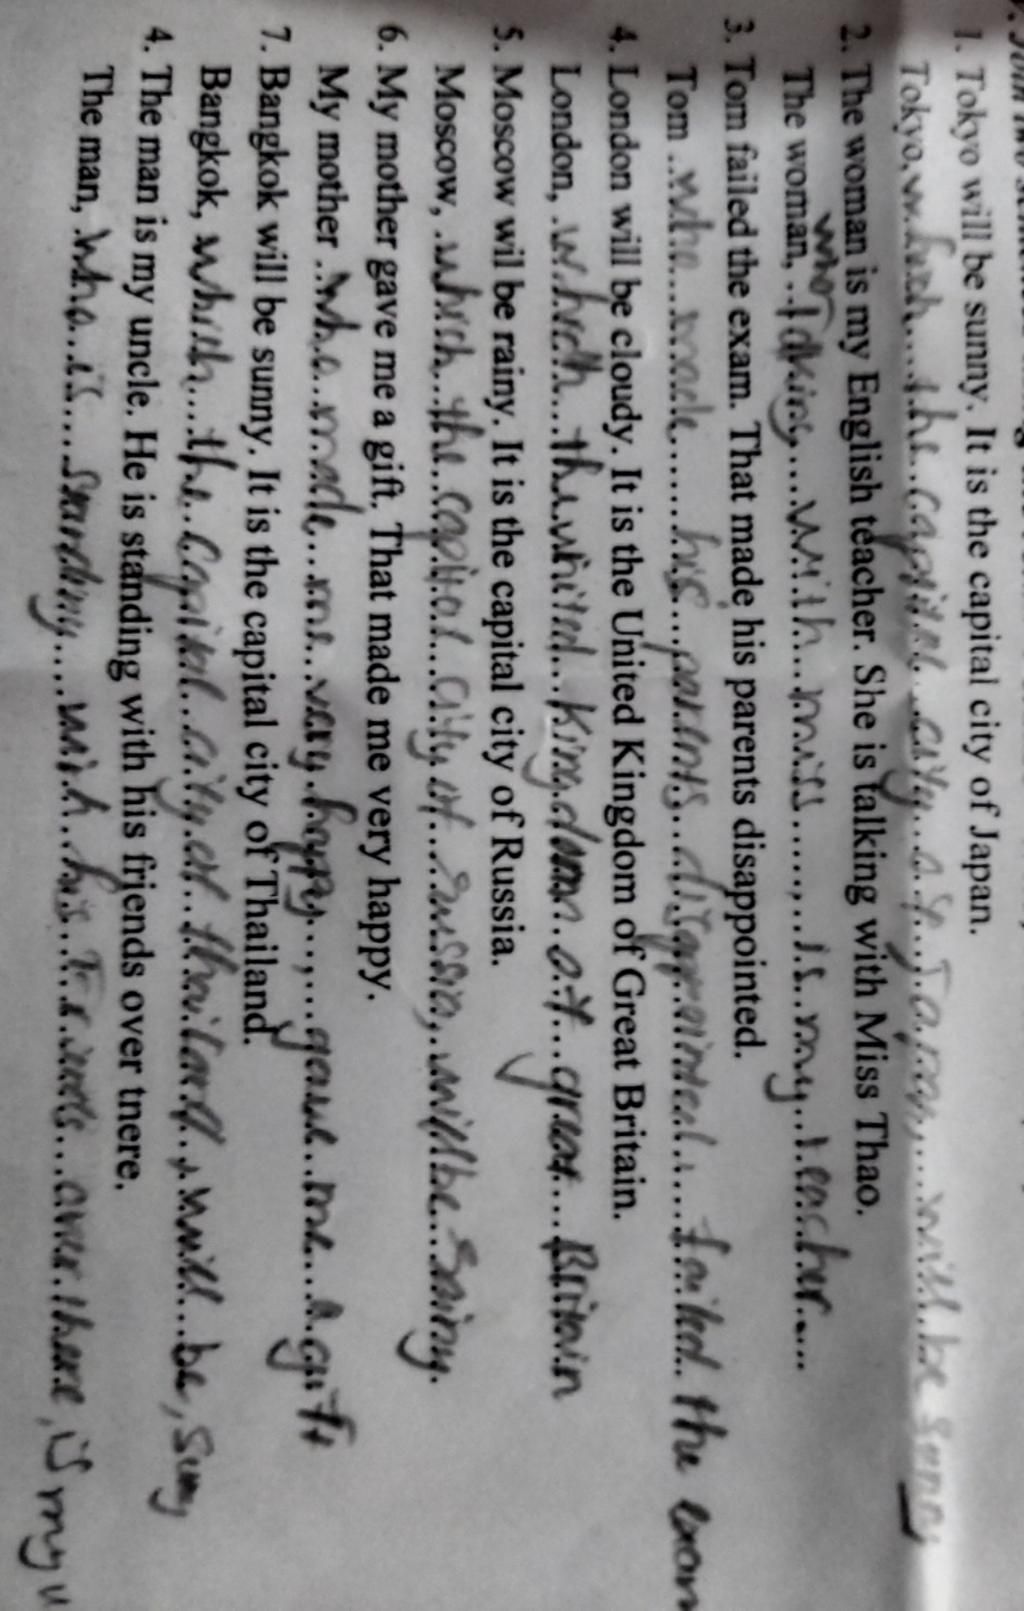 1. Tokyo will be sunny. It is the capital city of Japan.
Tokyo, which the capital city of Japan, will be sunny
2. The woman is my English teacher. She is talking with Miss Thao.
who
The woman, talking with miss, is my teacher
3. Tom failed the exam. That made his parents disappointed.
Tom who made his parents failed the
4. London will be cloudy. It is the United Kingdom of Great Britain.
London, which the united Kingdom of great Britain
5. Moscow wil be rainy. It is the capital city of Russia.
Moscow, which the capital city of will be
6. My mother gave me a gift. That made me very happy.
My mother who made me vary happy, gave me a
7. Bangkok will be sunny. It is the capital city of Thailand.
Bangkok, which the capital city of thailand, will be, suny
4. The man is my uncle. He is standing with his friends over there.
The man, who is with his over there, is my u